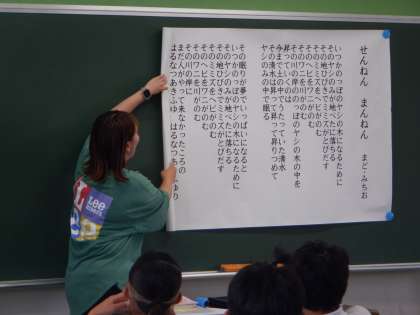 せんねん　まんねん
まど・みちお
いつかのっぽのヤシの木になるために
そのヤシのみが地べたに落ちる
その地ひびきでミミズがとびだす
そのミミズをヘビがのむ
そのヘビをワニがのむ
そのワニを川がのむ
その川の岸ののっぽのヤシの木の中を
昇っていくのは
今まで土の中でうたっていた清水
その清水は昇って昇って昇りつめて
ヤシのみの中で眠る
その眠りが夢でいっぱいになると
いつかのっぽのヤシの木になるために
そのヤシのみが地べたに落ちる
その地ひびきでミミズがとびだす
そのミミズをヘビがのむ
そのヘビをワニがのむ
そのワニを川がのむ
その川の岸に
まだ人がやって来なかったころの
はるなつあきふゆ はるなつあ
ゆり
Lee